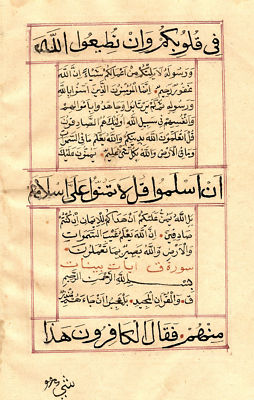 في قلوبكم وان تطيعوا الله
ورسوله لا يلتكم من اعمالكم شيئا ان الله
غفور رحيم انما المؤمنون الذين امنوا بالله
ورسوله ثم لم يرتابوا وجاهدوا باموالهم
وانفسهم في سبيل الله اولئك هم الصادقون
قل اتعلمون الله بدينكم والله يعلم ما في السموات
وما في الارض والله بكل شئ عليم يمنون عليك
ان اسلموا قل لا تمنوا على اسلامكم
بل الله يمن عليكم ان هداكم للايمان ان كنتم
صادقين ان الله يعلم غيب السموات
والارض والله بصير بما تعملون
سورة ق ايات
بسم الله الرحمن الرحيم
ق والقران المجيد بل عجبوا ان جاءهم منذر
منهم فقال الكافرون هذا
شئ